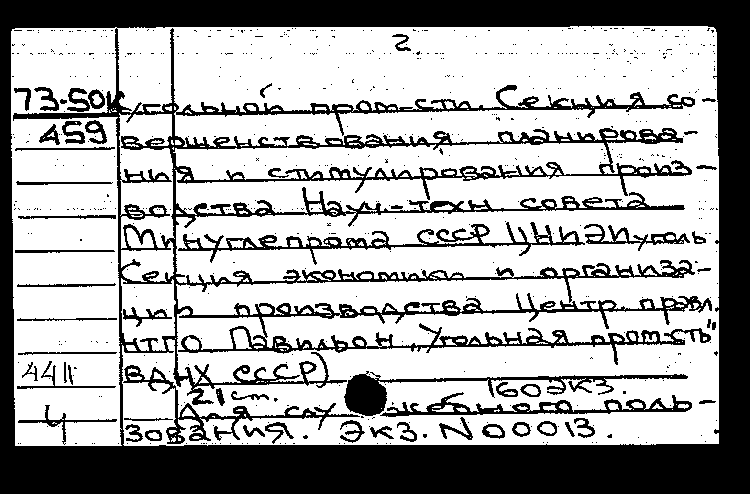 2.
73-50К угольной пром-сти. Секция со-
459 вершенствования планирова-
ния и стимулирования произ-
водства Науч.-техн совета
Минуглепрома СССР ЦНИЭИуголь.
Секция экономики и организа-
ции производства Центр. правл.
НТГО Павильон „Угольная пром-сть"
ВДНХ СССР)
21 ст. 160 экз.
Для служебного поль-
Ч зования. Экз. N 00013.